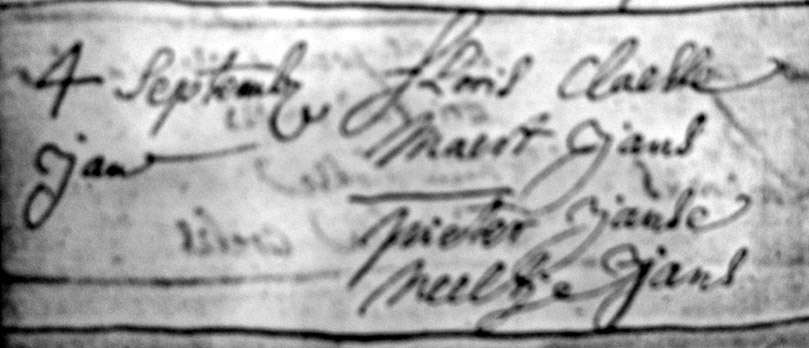 4 Septemb floris Claesse
Jan Maert Jans
pieter Janse
Neeltje Jans